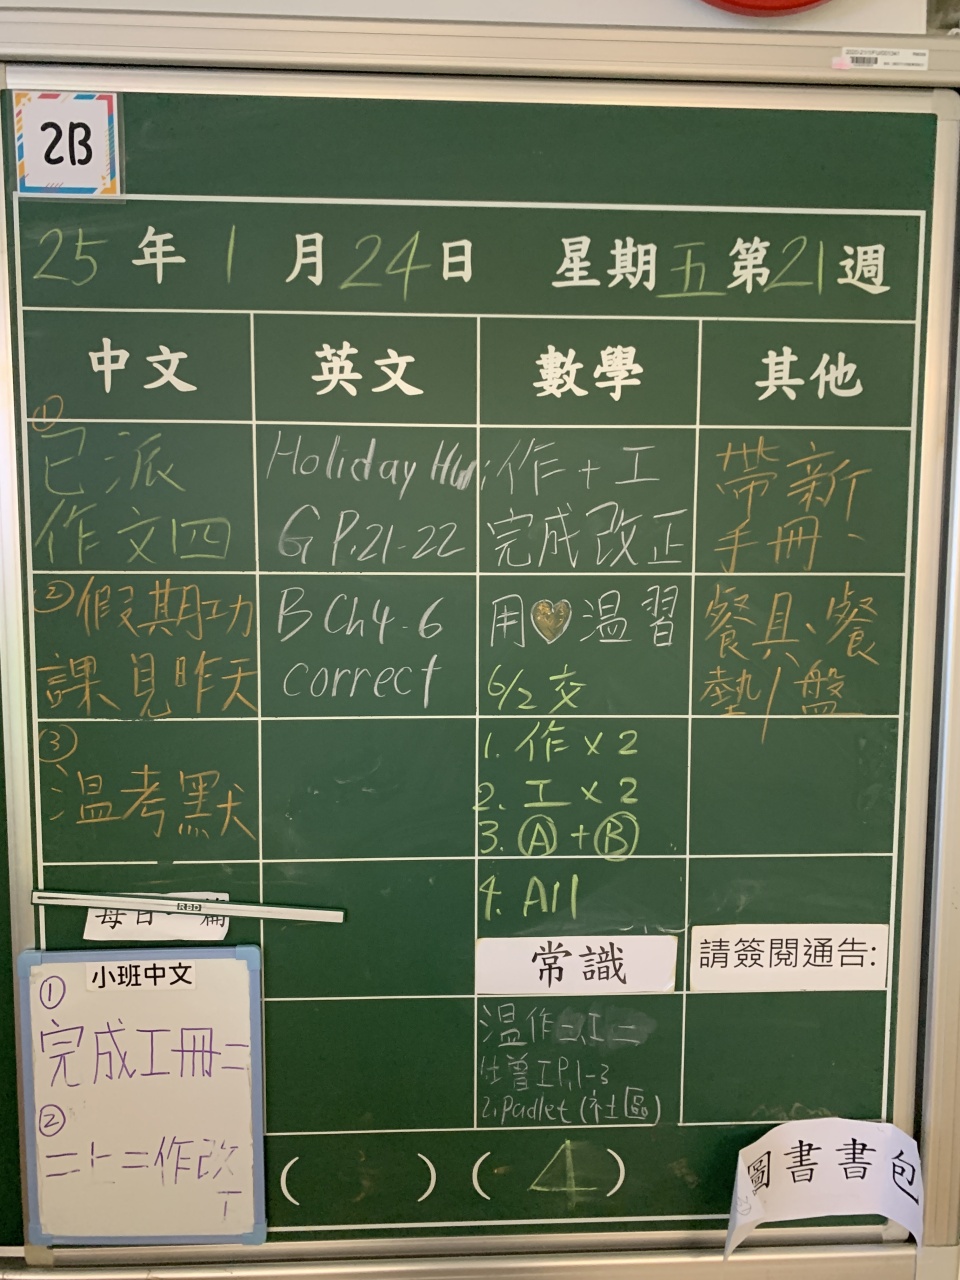 2B
25年1月24日 星期五第21週
中文 英文 數學 其他
①
已派
作文四
②假期功
課見昨天
③
溫考默
Holiday HW
G P.21-22
B Ch4-6
correct
作+工
完成改正
用 溫習
6/2 交
1. 作 x 2
2. 工 x 2
3. Ⓐ + Ⓑ
4. All
帶新
手冊、
餐具、餐
墊/盤
RBD
每日一篇
小班中文
①
完成工冊二
②
二上二作改
常識
溫作二工二
工P.1-3
2. Padlet (社區)
請簽閱通告:
( ) ( 4 )
圖書書包